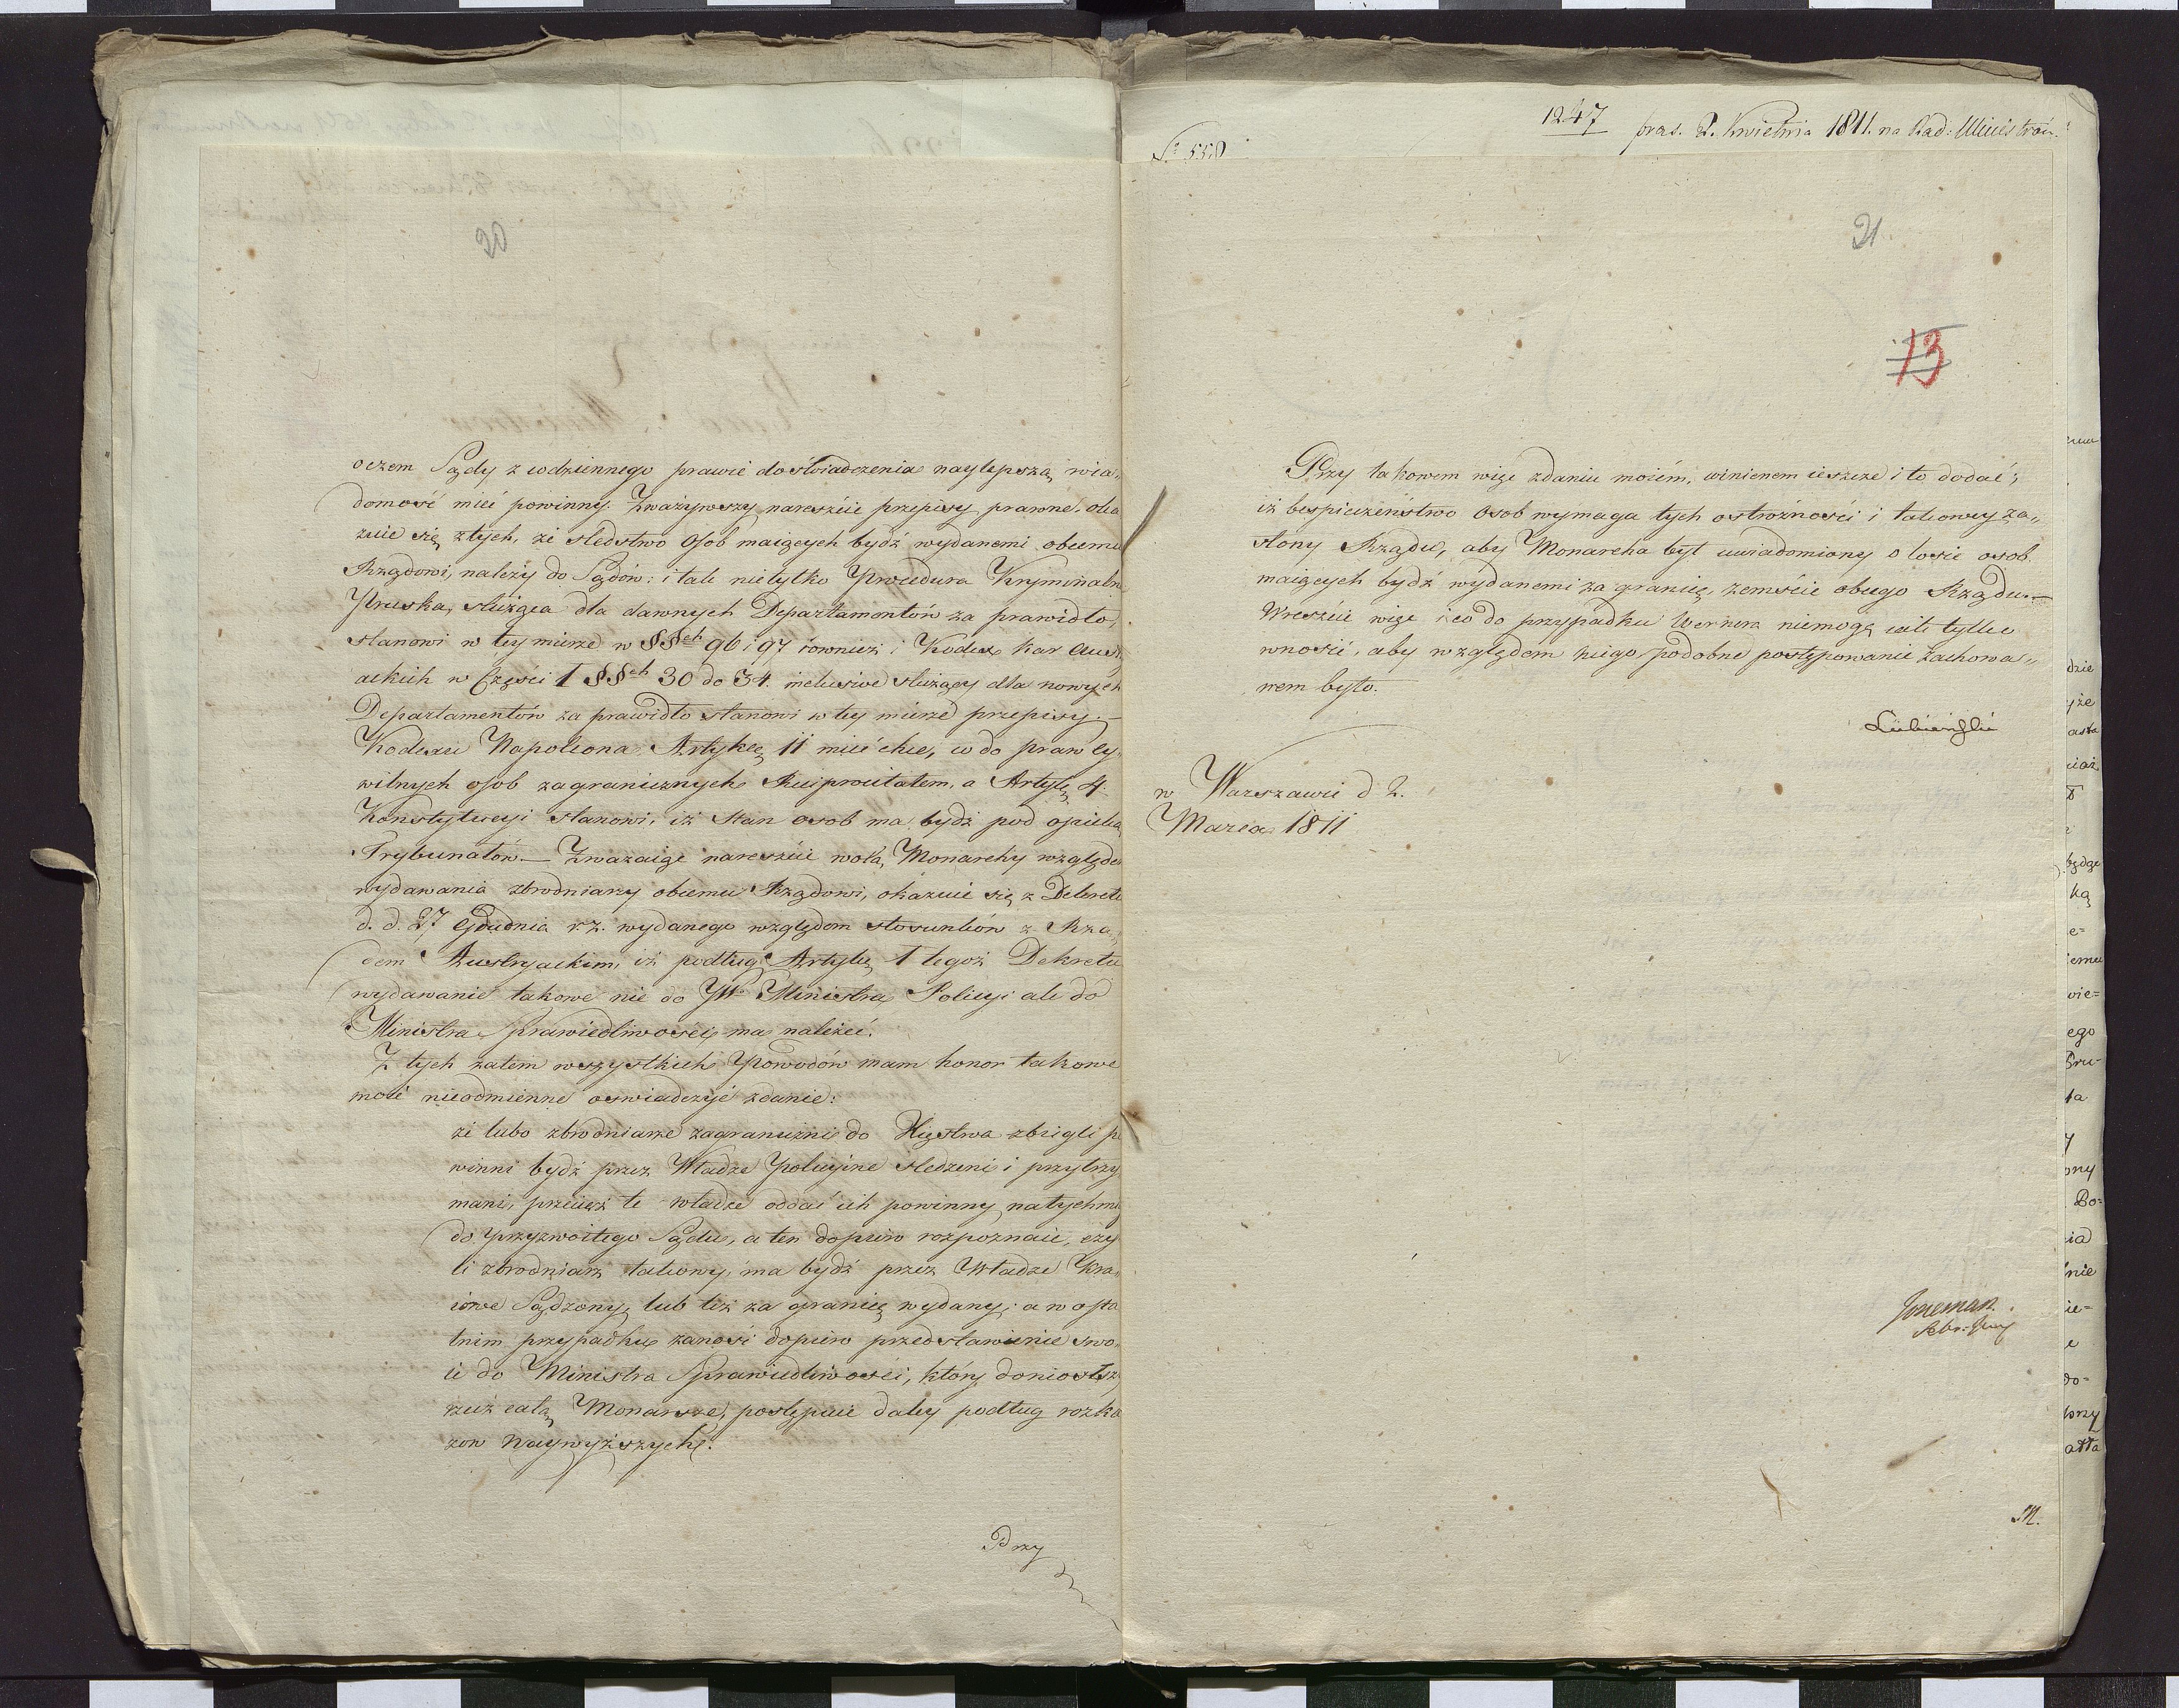 20
oczem Sądy z codziennego prawie doświadczenia naylepszą wia„
domość mieć powinny. Zważywszy nareszcie przepisy prawne oka
zuie się ztych, że sledstwo Osob maiących bydź wydanemi obcemu
Rządowi, należy do Sądów: i tak nietylko Procedura Kryminalna
Pruska, służąca dla dawnych Departamentów za prawidło,
stanowi w tey mierze w §§ch 96 i 97 również i Kodex kar Austr
ackich w Części 1 §§ch 30 do 34. inclusive służący dla nowych
Departamentów za prawidło stanowi w tey mierze przepisy.—
Kodexu Napoleona Artykł 11 mieć chce, co do praw cy
wilnych osob zagranicznych Reciprocitatem, a Artykł 4
Konstytucyi stanowi, iż stan osob ma bydź pod opieką
Trybunałów.— Zważaiąc nareszcie wolą Monarchy względem
wydawania zbrodniarzy obcemu Rządowi, okazuie się z Dekretu
d. d. 27 Grudnia r. z. wydanego względem stosunków z Rzą„
dem Austryackim, iż podług Artykł 1 tegoż Dekretu
wydawanie takowe nie do JW Ministra Policyi ale do
Ministra Sprawiedliwości ma należeć.
Z tych zatem wszystkich Powodów mam honor takowe
moie nieodmienne oswiadczyć zdanie:
że lubo zbrodniarze zagraniczni do Xięstwa zbiegli po
winni bydź przez Władze Policyine sledzeni i przytrzy
mani, przecież te władze oddać ich powinny natychmi
do przyzwoitego Sądu, a ten dopiero rozpoznaie, czy
li zbrodniarz takowy, ma bydź przez Władze Kra„
iowe Sądzony, lub też za granicę wydany; a w osta
tnim przypadku zanosi dopiero przedstawienie swo„
ie do Ministra Sprawiedliwości, który doniosłsz
rzecz całą Monarsze, postępuie daley podług rozka
zow Naywyższych.
Przy
1247 praes. 2. Kwietnia 1811. na Rad: Ministrów.
No 550
21.
13
Przy takowem więc zdaniu moiém, winienem ieszcze i to dodać,
iż bespieczeństwo Osob wymaga tych ostrożności i takowey za„
słony Rządu, aby Monarcha był uwiadomiony o losie osob
maiących bydź wydanemi za granicę, zemście obcego Rządu.—
Wreszcie więc i co do przypadku Wernera niemogę iak tylko
wnosić, aby względem niego podobne postępowanie zachowa„
nem było.
Łubieński
w Warszawie d 2.
Marca 1811
M.